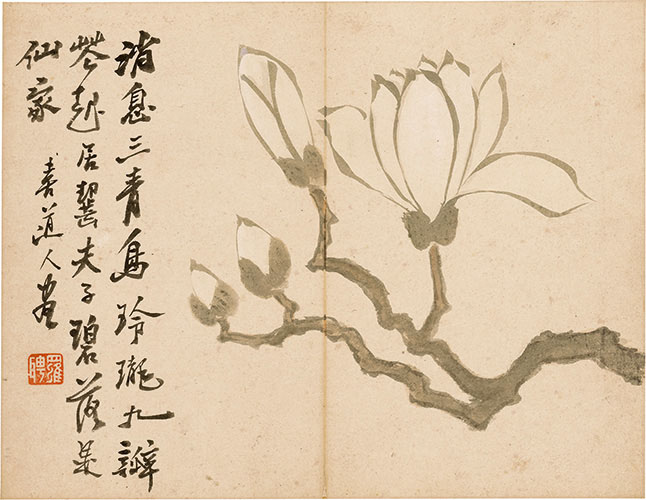 消息三青鳥玲瓏九瓣
花起居夫子碧落是
仙家
喜道人畫
羅聘